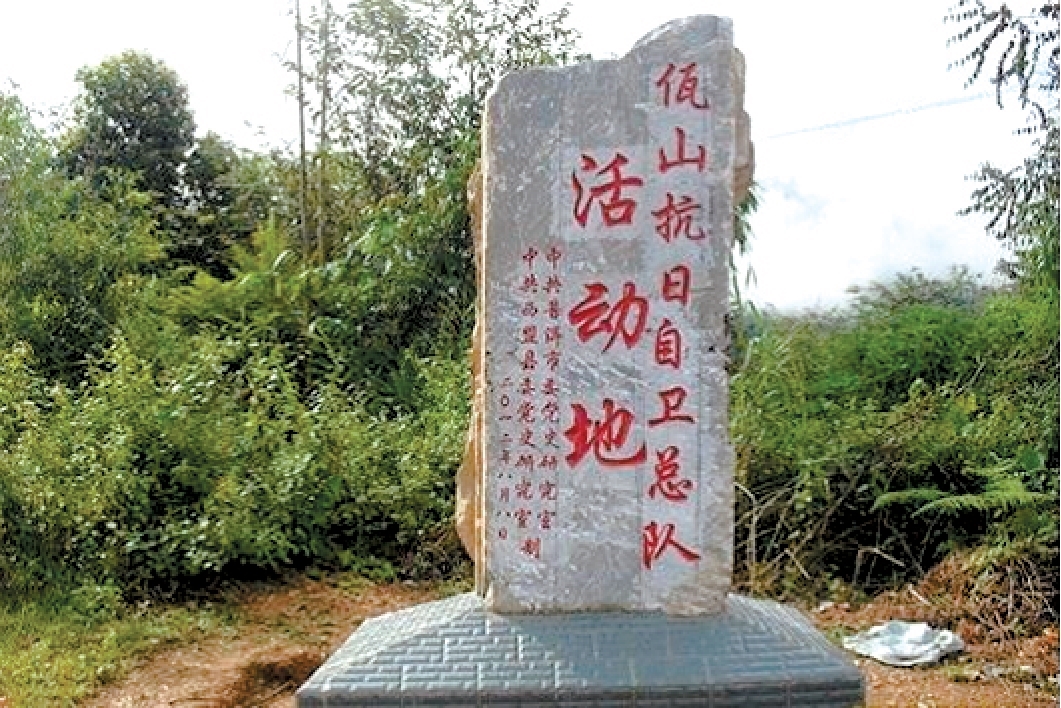 佤山抗日自卫总队
活动地
中共普洱市委党史研究室
中共西盟县委党史研究室制
二〇一二年八月八日